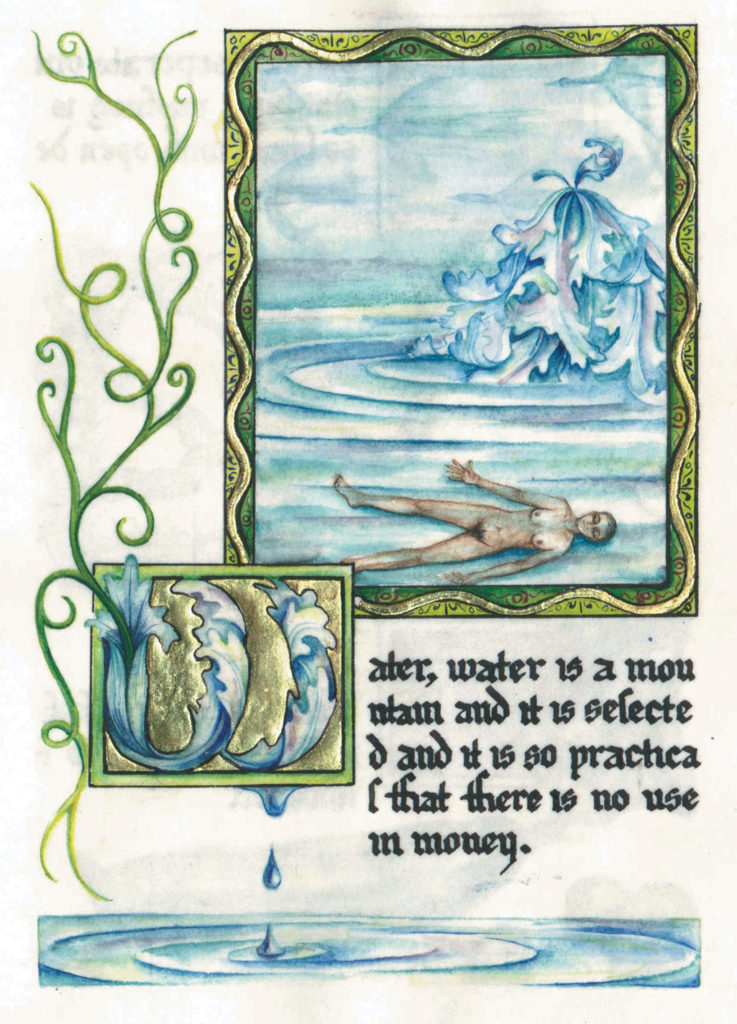 Water, water is a mou
ntain and it is selecte
d and it is so practica
l that there is no use
in money.